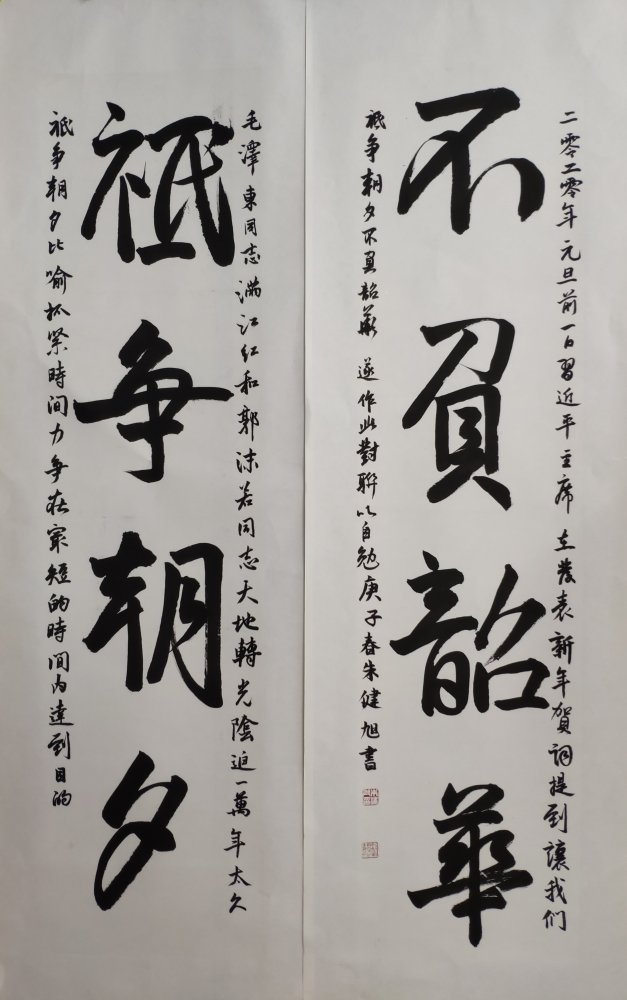 二零二零年元旦前一日習近平主席在發表新年賀詞提到讓我們
不負韶華
祗争朝夕不負韶華遂作此對聯以自勉庚子春朱健旭書
毛澤東同志滿江红和郭沫若同志大地轉光陰迫一萬年太久
祗争朝夕
祗争朝夕比喻抓紧時间力争在最短的時间内達到目的